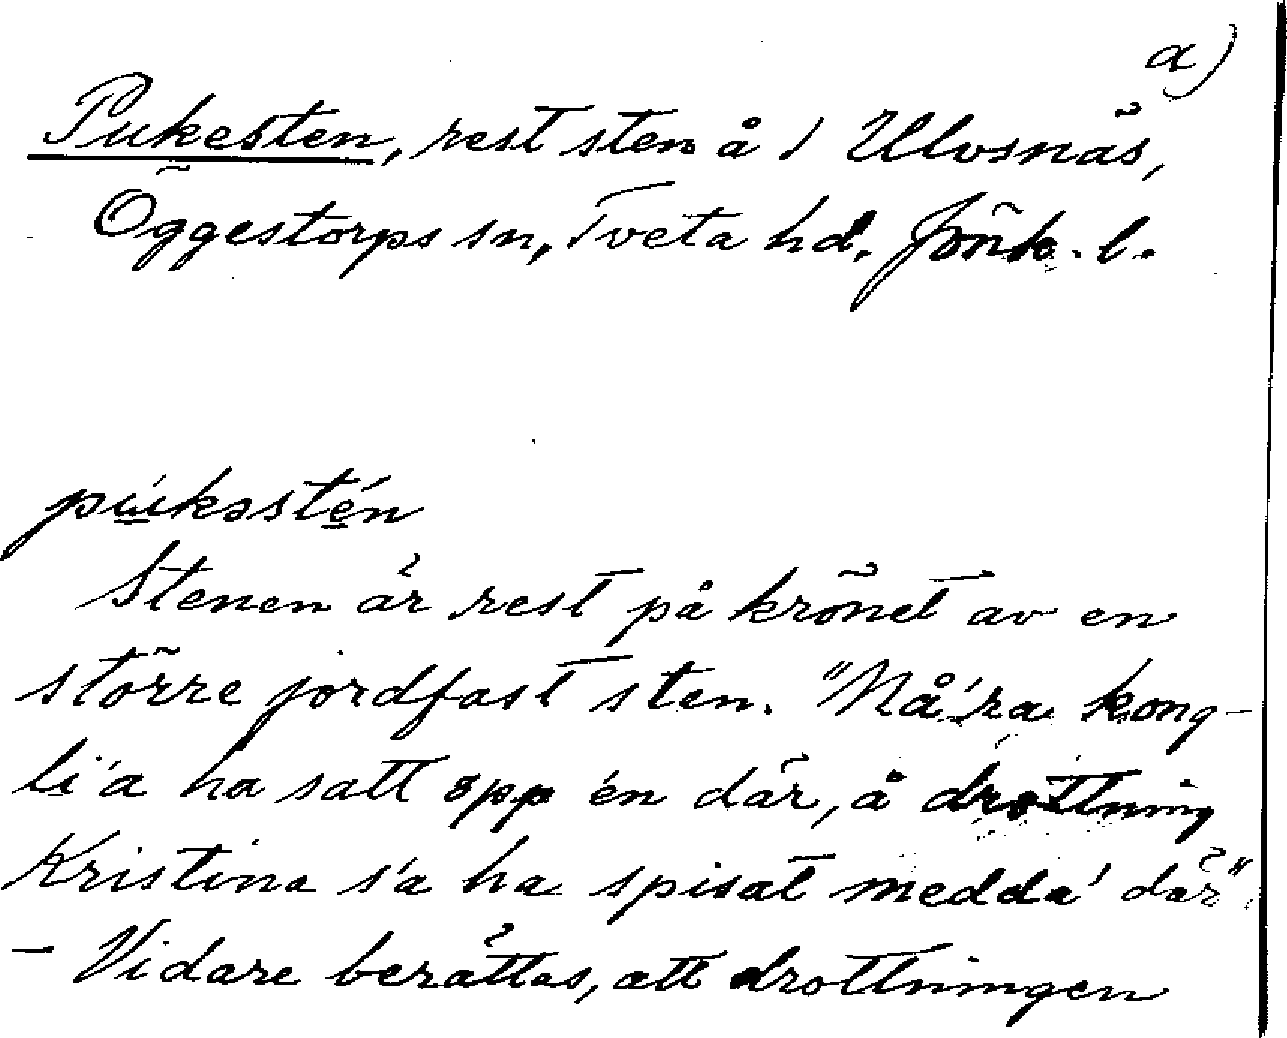 a)
Pukesten, rest sten å / Ulvsnäs,
Öggestorps sn, Tveta hd. Jönk. l.
pú̲kəsté̲n
Stenen är rest på krönet av en
större jordfast sten. "Nå'ra kong-
li'a ha satt opp én där, å drottning
Kristina s'a ha spisat medda' där".
- Vidare berättas, att drottningen